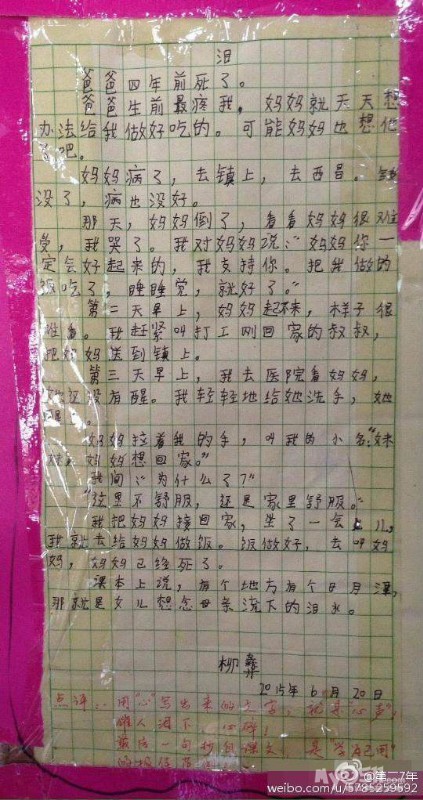 泪
爸爸四年前死了。
爸爸生前最疼我，妈妈就天天想
办法给我做好吃的。可能妈妈也想他
了吧。
妈妈病了，去镇上，去西昌。钱
没了，病也没好。
那天，妈妈倒了，看看妈妈很难
受，我哭了。我对妈妈说：“妈妈你一
定会好起来的，我支持你。把我做的
饭吃了，睡睡觉，就好了。”
第二天早上，妈妈起不来，样子很
难看。我赶紧叫打工刚回家的叔叔，
把妈妈送到镇上。
第三天早上，我去医院看妈妈，
她还没有醒。我轻轻地给她洗手，她
醒了。
妈妈拉着我的手，叫我的小名：“妹
妹，妈妈想回家。”
我问：“为什么了？”
“这里不舒服，还是家里舒服。”
我把妈妈接回家，坐了一会儿，
我就去给妈妈做饭。饭做好，去叫妈
妈，妈妈已经死了。
课本上说，有个地方有个日月潭，
那就是女儿想念母亲流下的泪水。
柳彝
2015年6月20日
点评：用“心”写出来的文字，就是“心声”，
催人泪下 心碎，
最后一句 课文，是“学以己用”
的
My
@第二7年
weibo.com/u/5785259592